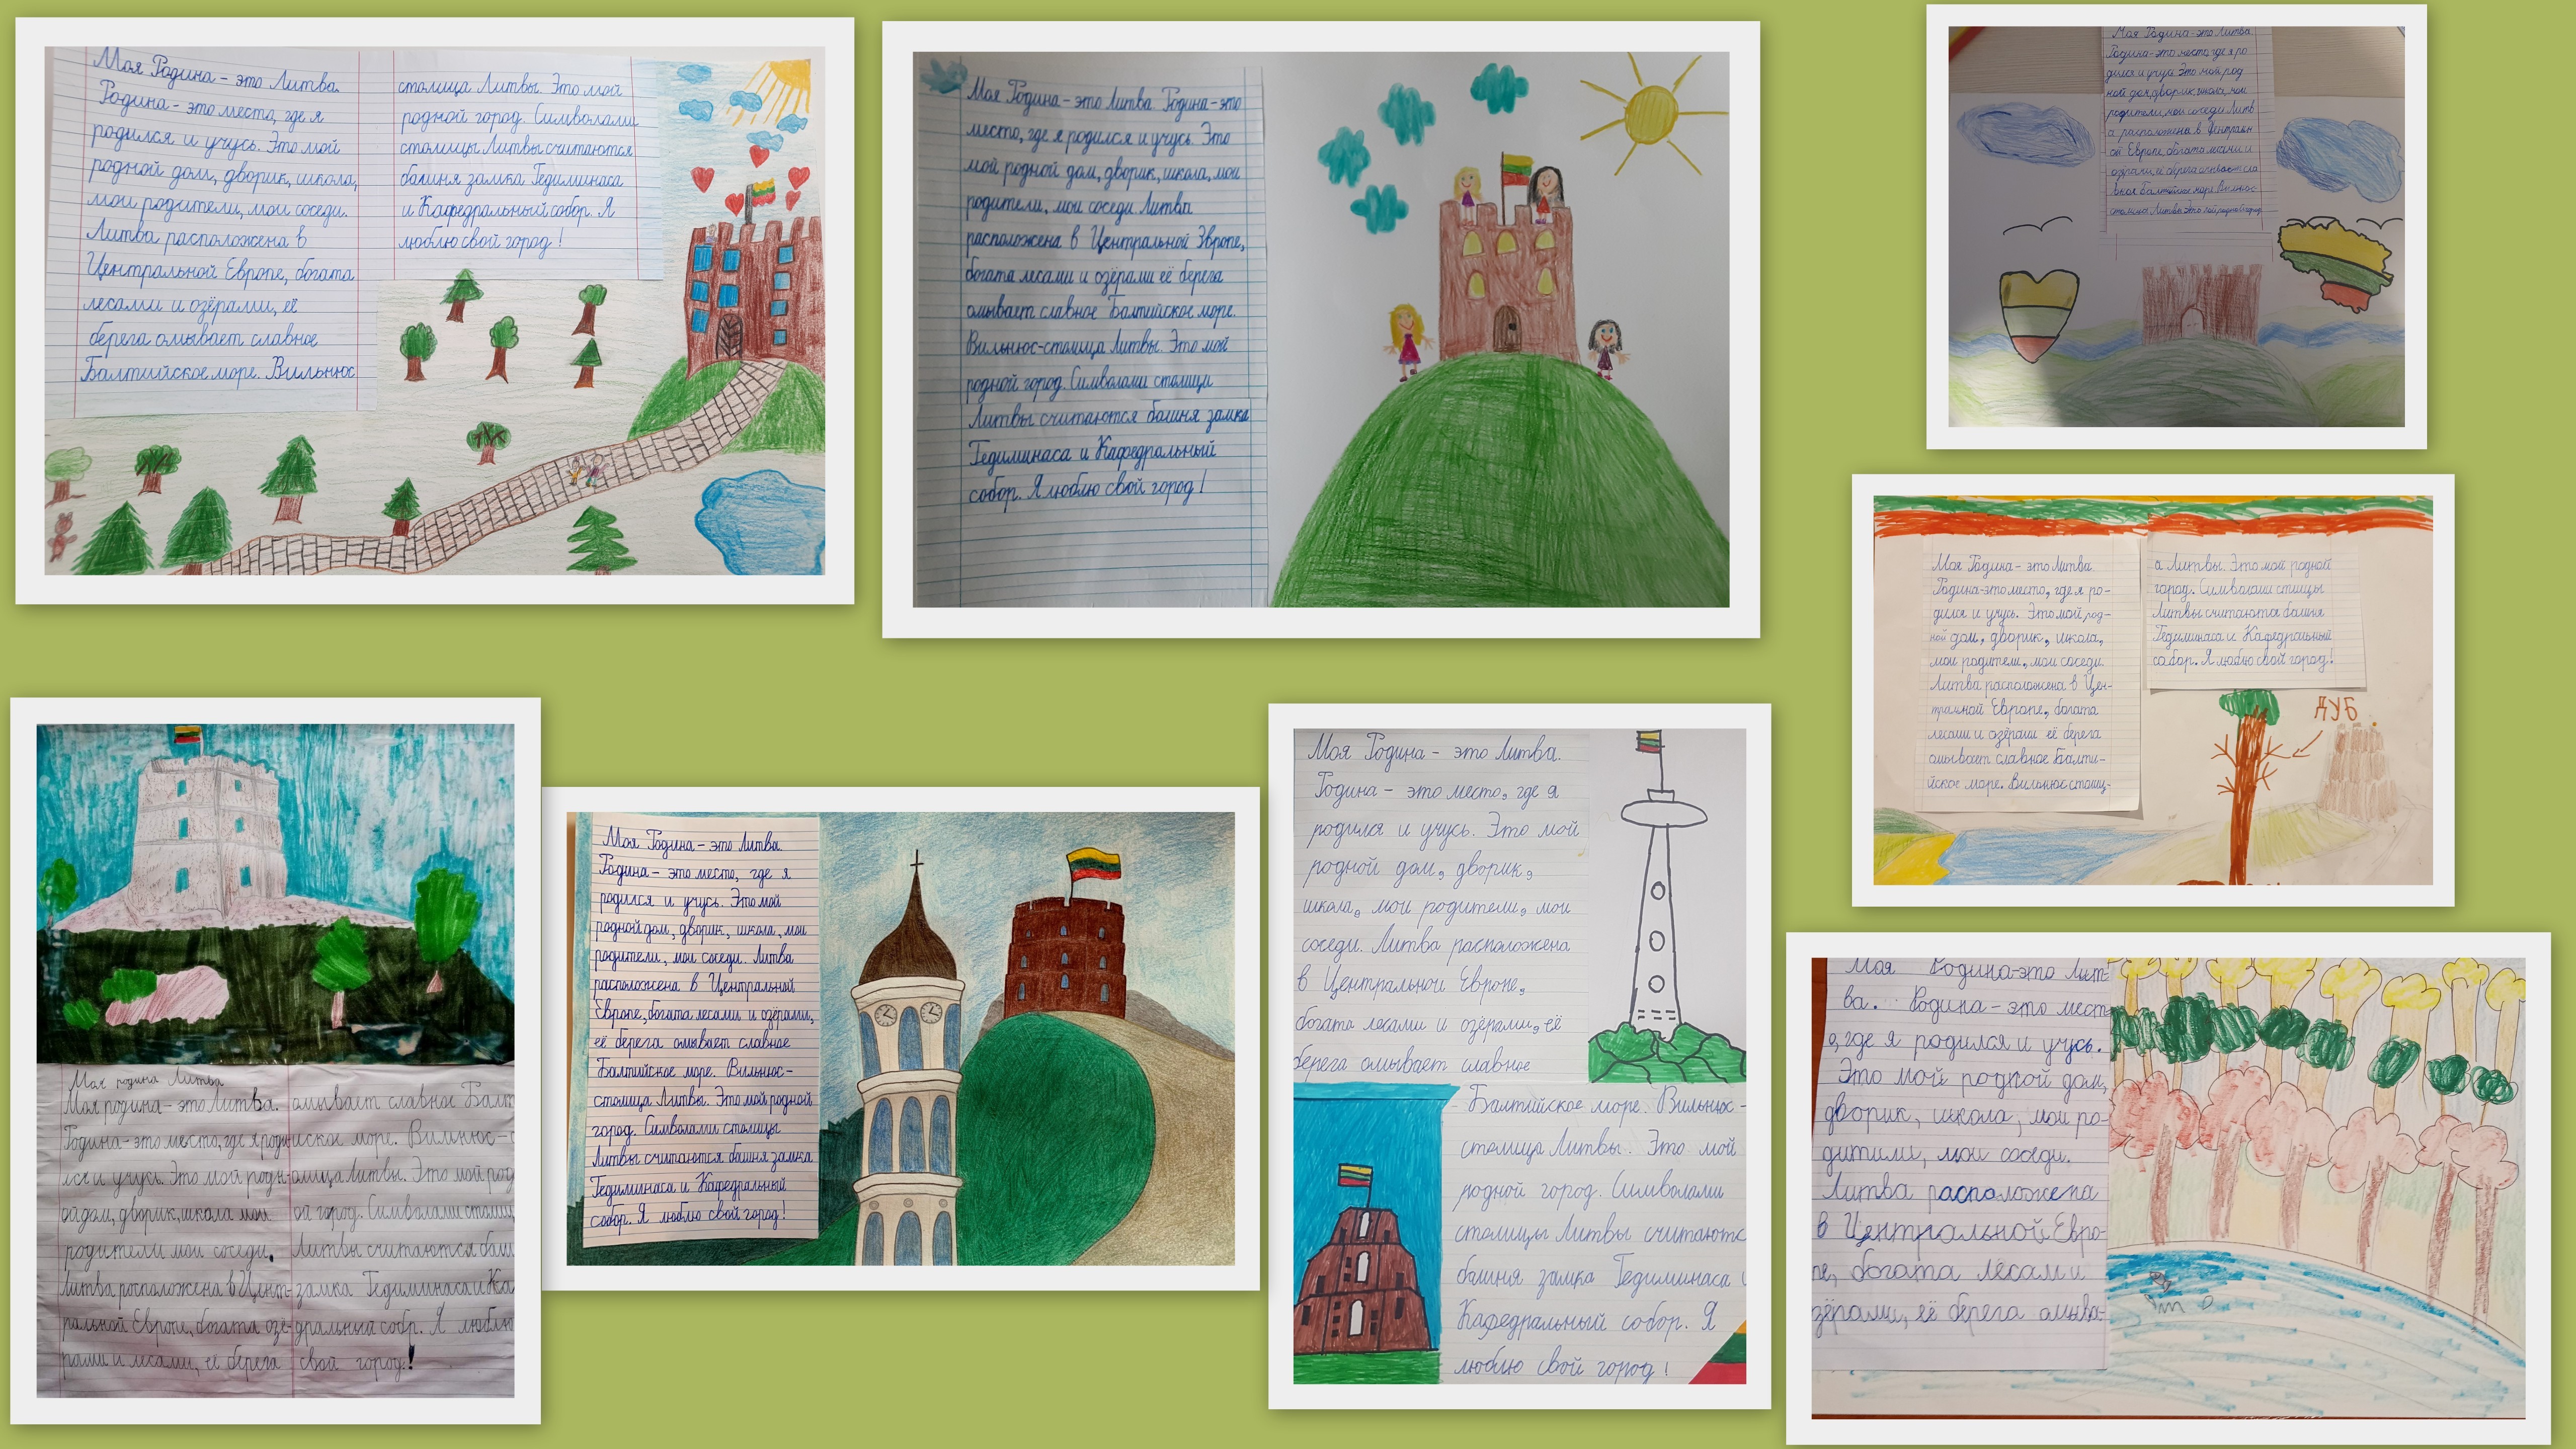 Моя Родина – это Литва.
Родина – это место, где я
родился и учусь. Это мой
родной дом, дворик, школа,
мои родители, мои соседи.
Литва расположена в
Центральной Европе, богата
лесами и озёрами, её
берега омывает славное
Балтийское море. Вильнюс
столица Литвы. Это мой
родной город. Символами
столицы Литвы считаются
башня замка Гедиминаса
и Кафедральный собор. Я
люблю свой город!
Моя Родина – это Литва. Родина – это
место, где я родился и учусь. Это
мой родной дом, дворик, школа, мои
родители, мои соседи. Литва
расположена в Центральной Эвропе,
богата лесами и озёрами её берега
омывает славное Балтийское море.
Вильнюс-столица Литвы. Это мой
родной город. Символами столицы
Литвы считаются башня замка
Гедиминаса и Кафедральный
собор. Я люблю свой город!
Моя Родина – это Литва
Родина – это место где я ро
дился и учусь Это мой род
ной дом, дворик, школа, мои
родители, мои соседи Литв
а расположена в Центральн
ой Европе богата лесами и
озёрами её берега омывает сла
вное Балтийское море Вильнюс
столица Литвы Это мой родной город
Моя Родина – это Литва.
Родина – это место, где я ро-
дился и учусь. Это мой род-
ной дом, дворик, школа,
мои родители, мои соседи.
Литва расположена в Цен-
тральной Европе, богата
лесами и озёрами её берега
омывает славное Балти-
йское море. Вильнюс столиц-
а Литвы. Это мой родной
город. Символами
Литвы считаются башня
Гедиминаса и Кафедральный
собор. Я люблю свой город!
Моя родина Литва
Моя родина – это Литва.
Родина – это место, где я роди
лся и учусь. Это мой родн-
ой дом, дворик, школа мои
родители мои соседи.
Литва расположена в Цент-
ральной Европе, богата озё-
рами и лесами, её берега
омывает славное Балт
ийское море. Вильнюс – с
олица Литвы. Это мой род
ой город. Символами столиц
Литвы считаются баш
замка Гедиминаса и Ка
дральный собр. Я люблю
свой город!
Моя Родина – это Литва.
Родина – это место, где я
родился и учусь. Это мой
родной дом, дворик, школа, мои
родители, мои соседи. Литва
расположена в Центральной
Европе, богата лесами и озёрами,
её берега омывает славное
Балтийское море. Вильнюс –
столица Литвы. Это мой родной
город. Символами столицы
Литвы считаются башня замка
Гедиминаса и Кафедральный
собор. Я люблю свой город!
Моя Родина – это Литва.
Родина – это место, где я
родился и учусь. Это мой
родной дом, дворик,
школа, мои родители, мои
соседи. Литва расположена
в Центральной Европе,
богата лесами и озёрами, её
берега омывает славное
Балтийское море. Вильнюс –
столица Литвы. Это мой
родной город. Символами
столицы Литвы считаютс
башня замка Гедиминаса
Кафедральный собор. Я
люблю свой город!
Моя Родина – это Лит-
ва. Родина – это мест
о, где я родился и учусь.
Это мой родной дом,
дворик, школа, мои ро-
дители, мои соседи.
Литва расположена
в Центральной Евро-
пе, богата лесами и
зёрами, её берега омыва-